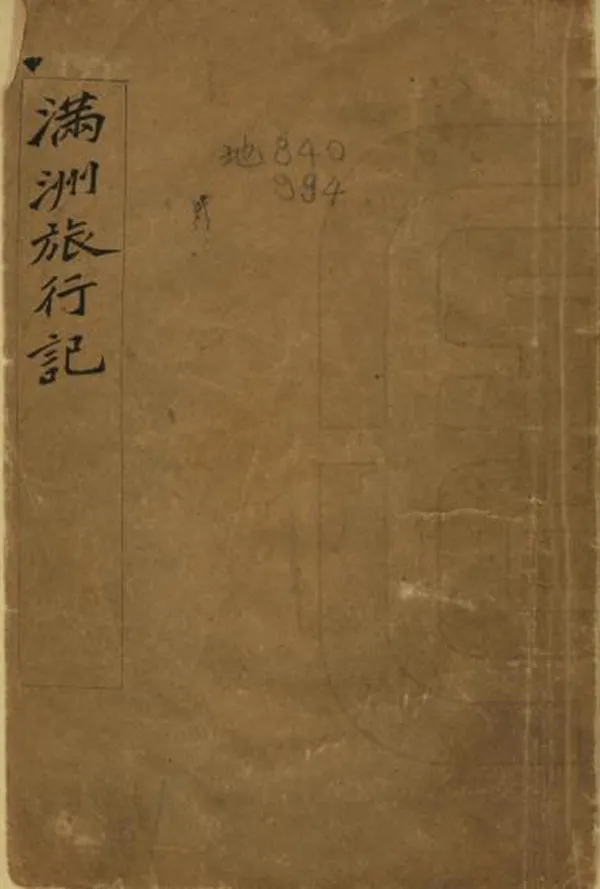 滿洲旅行記
地840
994